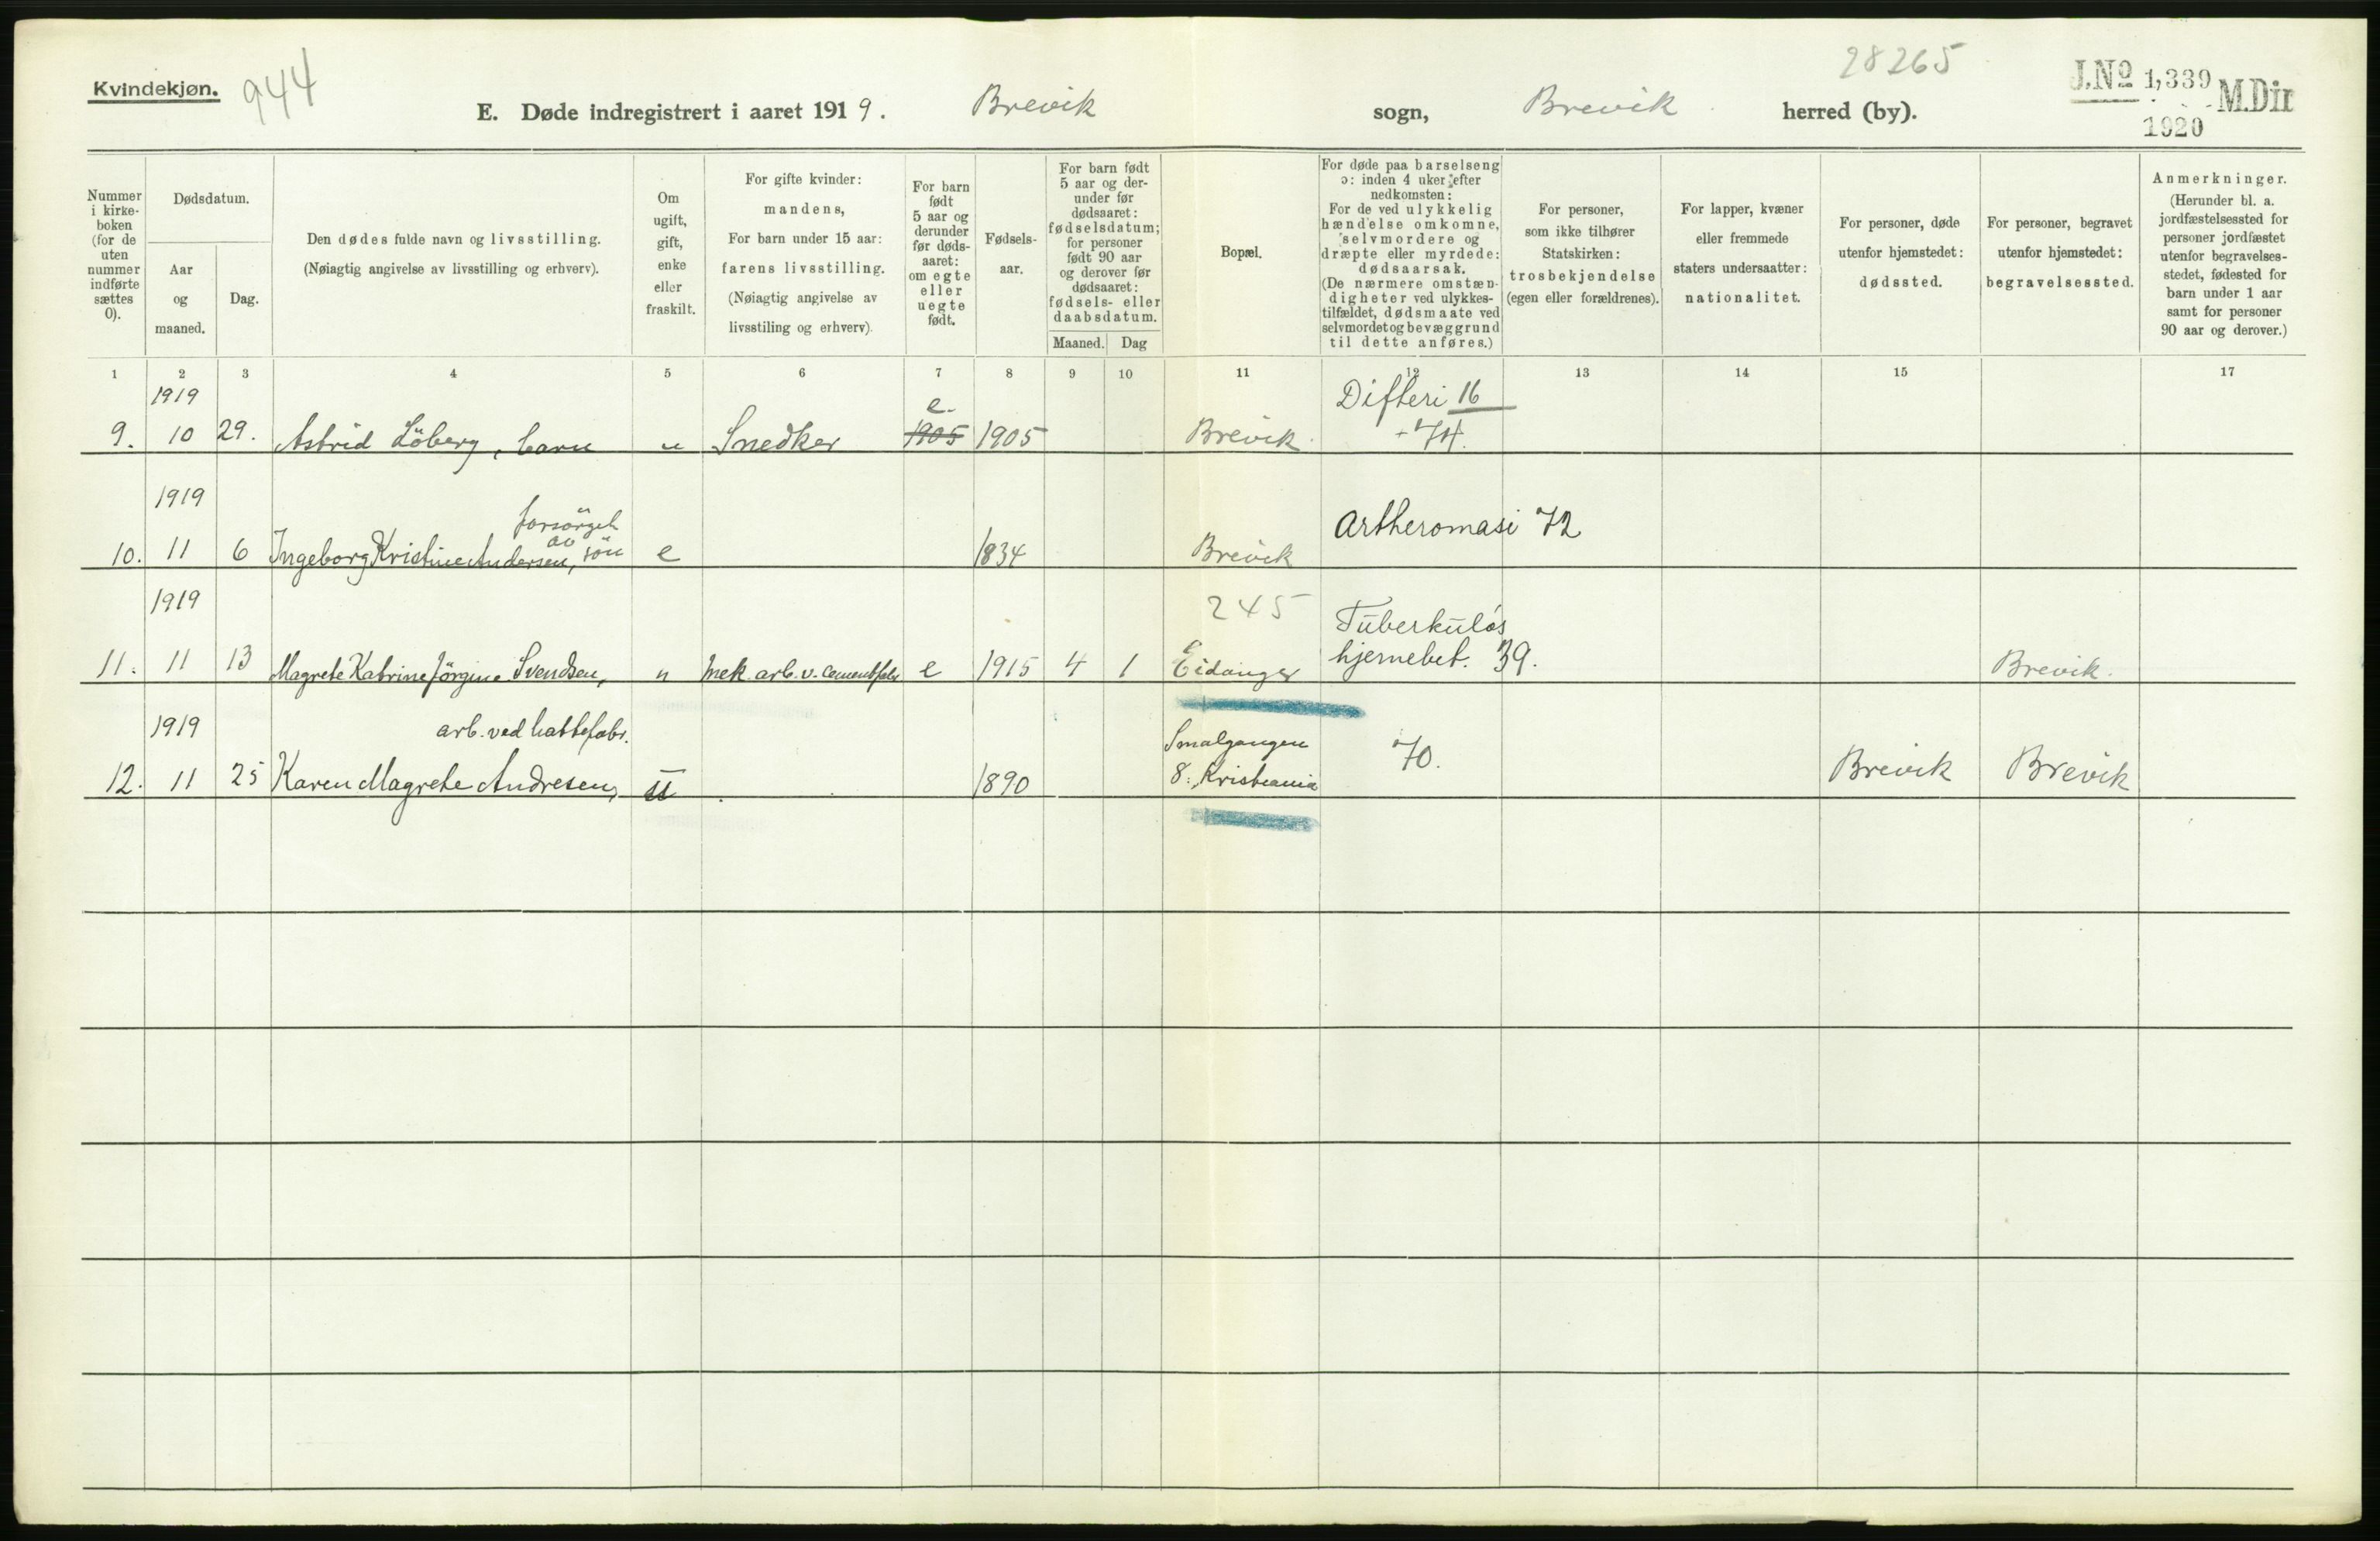 Kvindekjøn.
944
28265
J.Nº 1,339 M.Dir
1920
E. Døde indregistrert i aaret 1919. Brevik sogn, Brevik herred (by).
Nummer i kirke-boken (for de uten nummer indførte sættes 0).
Dødsdatum.
Aar og maaned.
Dag.
Den dødes fulde navn og livsstilling.
(Nøiagtig angivelse av livsstilling og erhverv).
Om ugift, gift, enke eller fraskilt.
For gifte kvinder: mandens,
For barn under 15 aar: farens livsstilling.
(Nøiagtig angivelse av livsstiling og erhverv).
For barn født 5 aar og derunder før døds-aaret: om egte eller uegte født.
Fødsels-aar.
For barn født 5 aar og der-under før dødsaaret: fødselsdatum; for personer født 90 aar og derover før dødsaaret: fødsels- eller daabsdatum.
Maaned. Dag
Bopæl.
For døde paa barselseng
ɔ: inden 4 uker efter
nedkomsten:
For de ved ulykkelig
hændelse omkomne,
selvmordere og
dræpte eller myrdede:
dødsaarsak.
(De nærmere omstæn-
digheter ved ulykkes-
tilfældet, dødsmaate ved
selvmord et og bevæggrund
til dette anføres.)
For personer, som ikke tilhører Statskirken: trosbekjendelse (egen eller forældrenes).
For lapper, kvæner eller fremmede staters undersaatter: nationalitet.
For personer, døde utenfor hjemstedet: dødssted.
For personer, begravet utenfor hjemstedet: begravelsessted.
Anmerkninger.
(Herunder bl. a.
jordfæstelsessted for
personer jordfæstet
utenfor begravelses-
stedet, fødested for
barn under 1 aar
samt for personer
90 aar og derover.)
1 2 3 4 5 6 7 8 9 10 11 12 13 14 15 17
1919 e. Difteri 16
9. 10 29. Astrid Löberg, barn u Snedker 1905 1905 Brevik. + 74.
1919 forsörget
av
10. 11 6 Ingeborg Kristine Andersen, sön e 1834 Brevik Artheromasi 72
1919 245 Tuberkulös
11. 11 13 Magrete Katrine Jörgine Svendsen, u Mek. arb. v. Cementfabr e 1915 4 1 Eidanger hjernebet. 39. Brevik.
1919 arb. ved hattefabr. Smalgangen
12. 11 25 Karen Magrete Andresen, u 1890 8, Kristiania 70. Brevik Brevik